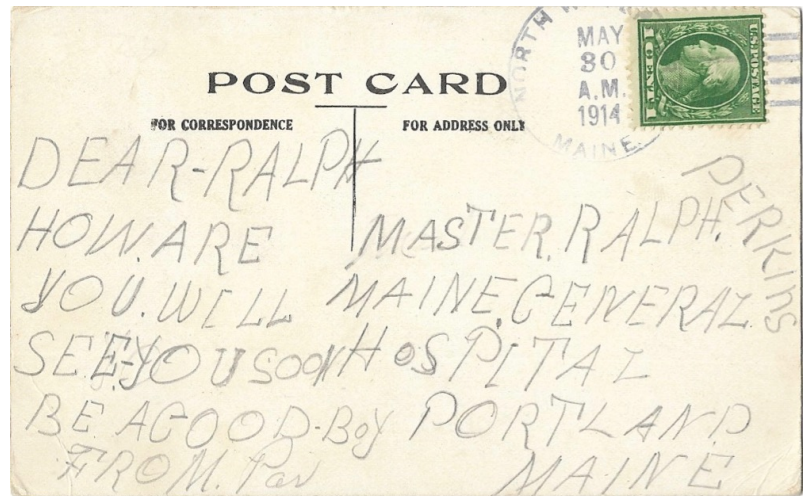 POST CARD
FOR CORRESPONDENCE
FOR ADDRESS ONLY
NORTH
MAY
30
A.M.
1914
MAINE.
U.S. POSTAGE
1 CENT 1
DEAR-RALPH
HOW.ARE
YOU.WILL
SEE-YOU SOON
BE A GOOD-BOY
FROM.
MASTER.RALPH.
PERKINS
MAINE.GENERAL
HOSPITAL
PORTLAND
MAINE